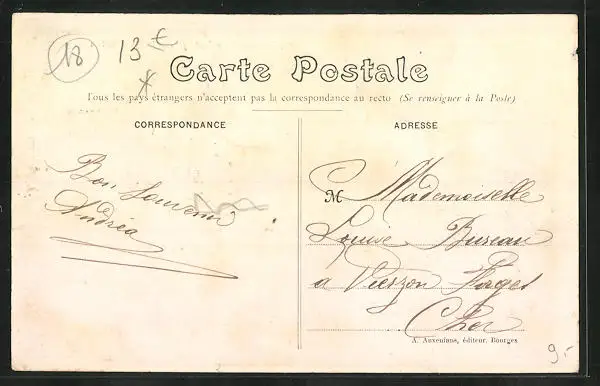 18
13 €
Carte Postale
Tous les pays étrangers n'acceptent pas la correspondance au recto (Se renseigner à la Poste)
CORRESPONDANCE
ADRESSE
Bon Souvenir
Andréa
M Mademoiselle
Louise Bureau
a Vierzon Forges
Cher
A. Auxenfans, éditeur, Bourges
9.-